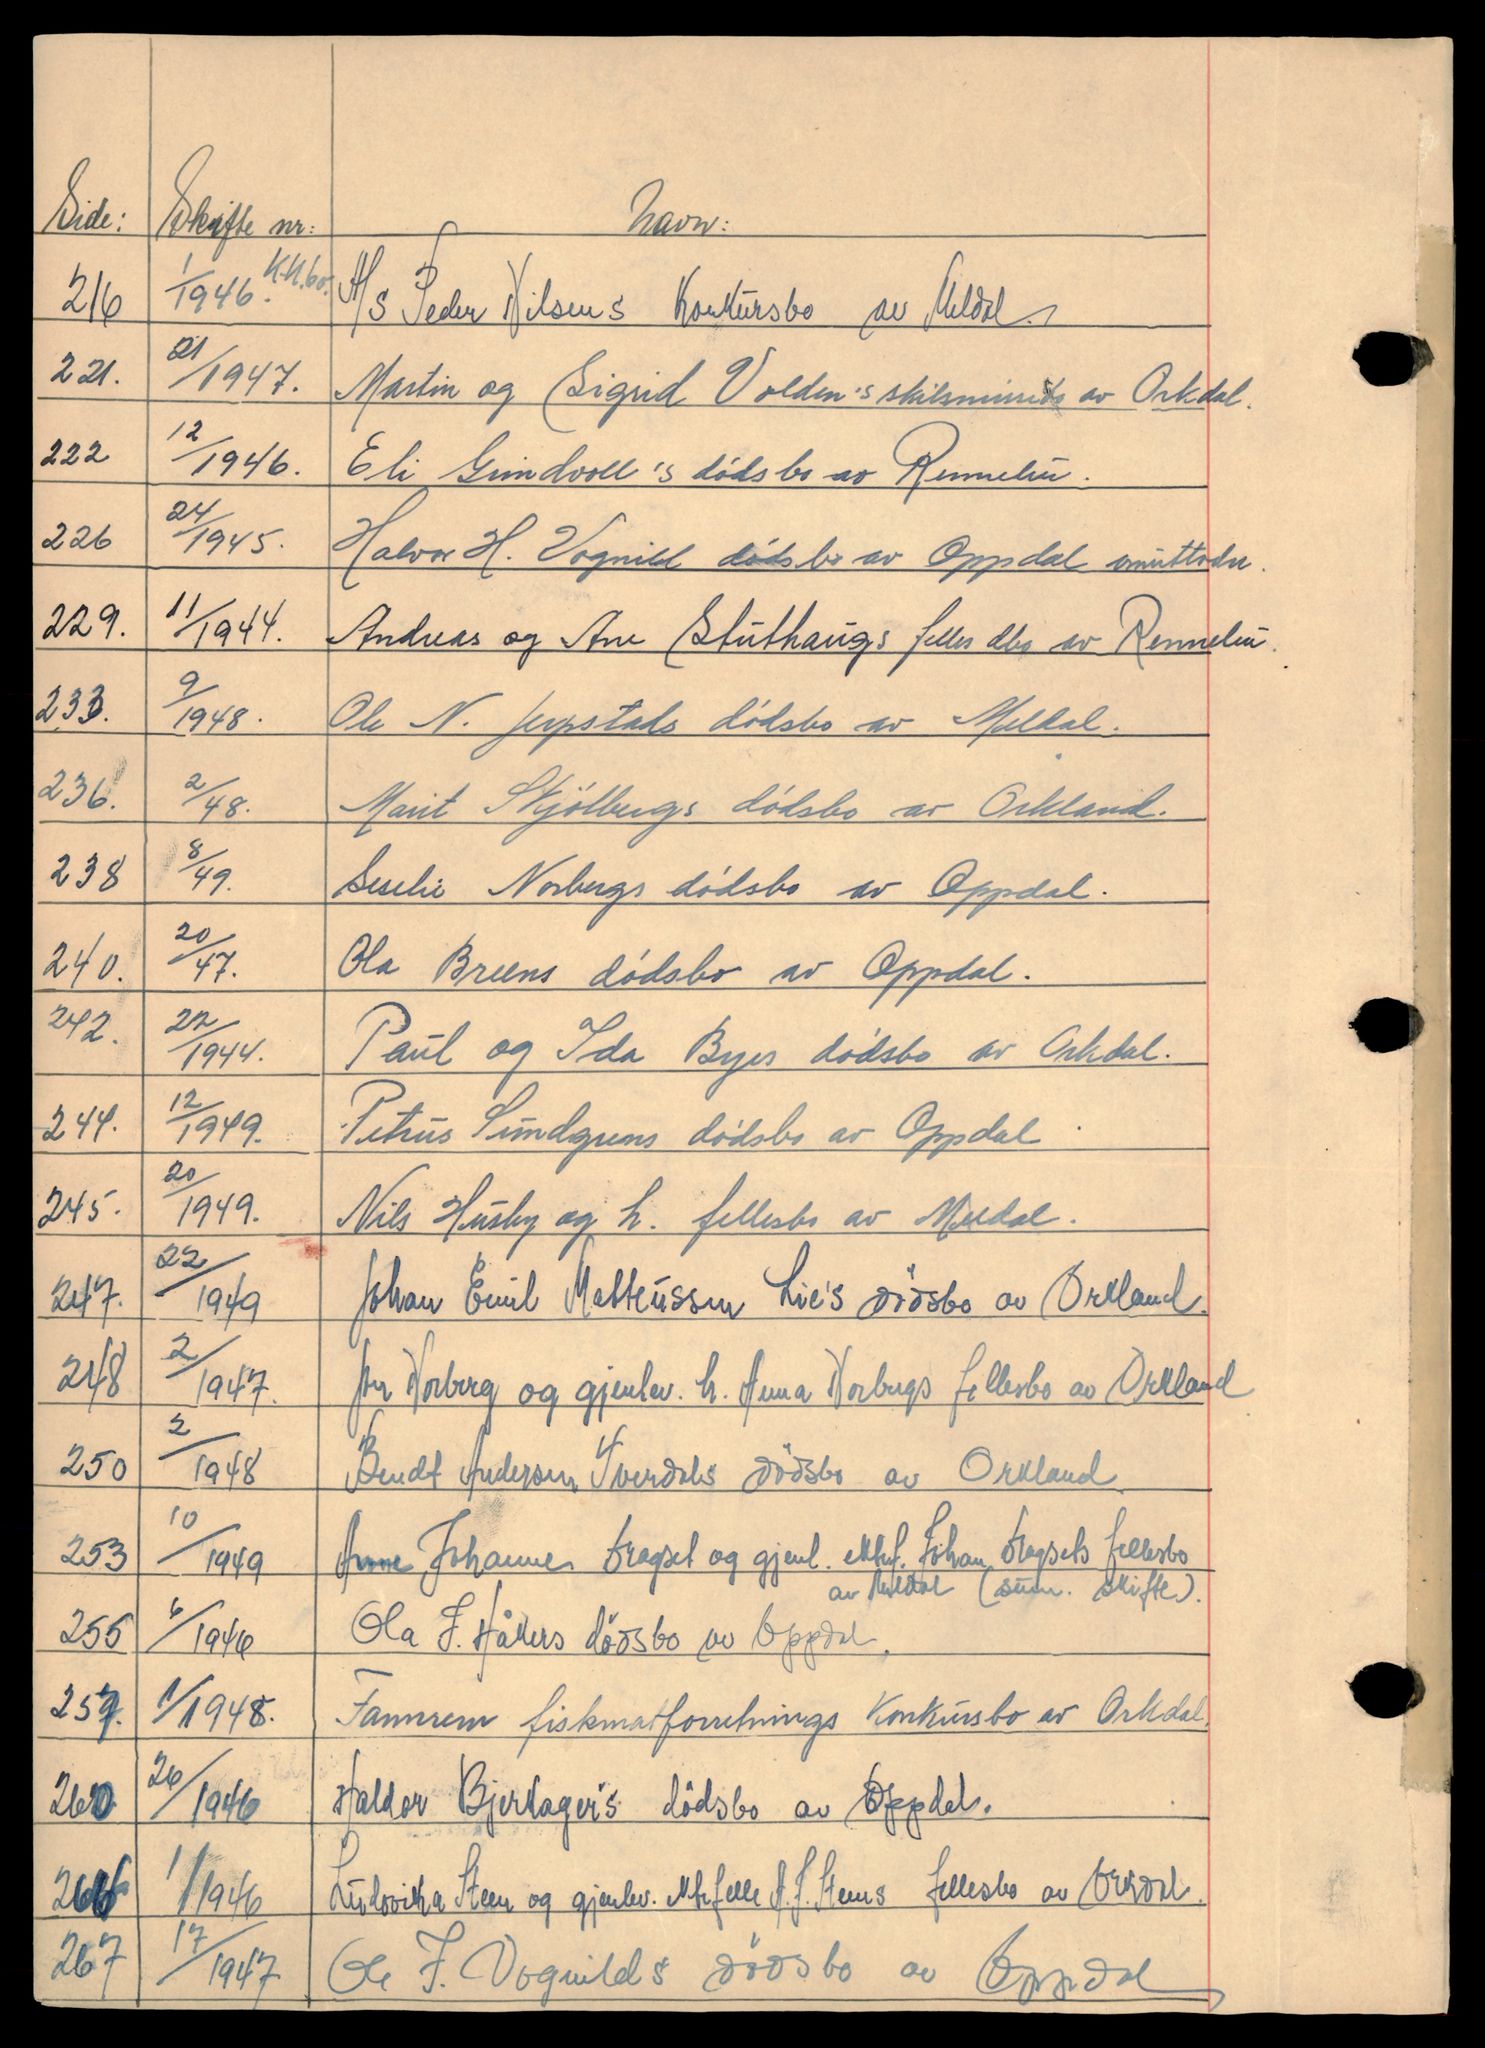 Side: Skifte nr: Navn:
216 1/1946. K.K.bo. A/S Peder Nilsens Konkursbo av Meldal.
221. 21/1947. Martin og Sigrid Volden's skilsmissebo av Orkdal.
222 12/1946. Eli Grindvoll's dödsbo av Rennebu.
226 24/1945. Halvor H. Vognild dödsbo av Oppdal
229. 11/1944. Andreas og Ane Stuthaugs felles dbo av Rennebu.
233. 9/1948. Ole N. Jerpstads dödsbo av Meldal.
236. 2/48. Marit Skjölbergs dödsbo av Orkland.
238 8/49. Seselie Norbergs dödsbo av Oppdal.
240. 20/47. Ola Breens dödsbo av Oppdal.
242. 22/1944. Paul og Ida Byes dödsbo av Orkdal.
244. 12/1949. Petrus Sundgrens dödsbo av Oppdal
245. 20/1949. Nils Husby og h. fellesbo av Meldal.
247. 22/1949 Johan Emil Matteussen Lie's dödsbo av Orkland.
248 2/1947. Jon Norberg og gjenlev. h. Anna Norbergs fellesbo av Orkland
250 2/1948 Bendt Andersen Sverdals dödsbo av Orkland.
253 10/1949 Anne Johanne Dragset og gjenl. ektef. Johan Dragsets fellesbo
av Meldal (sum. skifte).
255 6/1946 Ola J. Håkers dödsbo av Oppdal.
257. 1/1948. Fannrem fiskmatforretnings Konkursbo av Orkdal.
260 26/1946 Haldor Bjerkager's dödsbo av Oppdal.
266 11/1946 Ludovika Steen og gjenlev. ektefelle A. J. Steens fellesbo av Orkdal.
267 17/1947 Ole J. Vognild's dödsbo av Oppdal